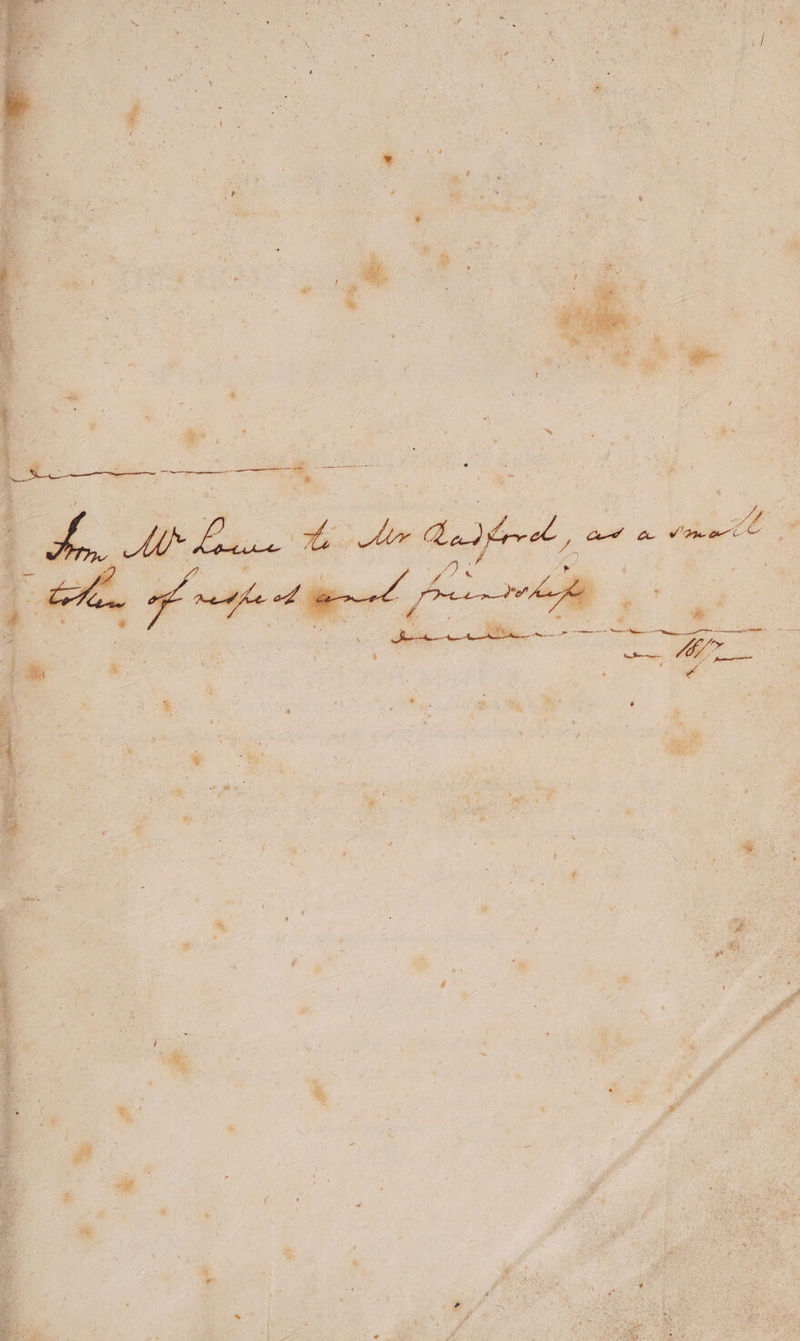 from Mr Lowe to Mr Radford, as a small
token of respect and friendship
1817